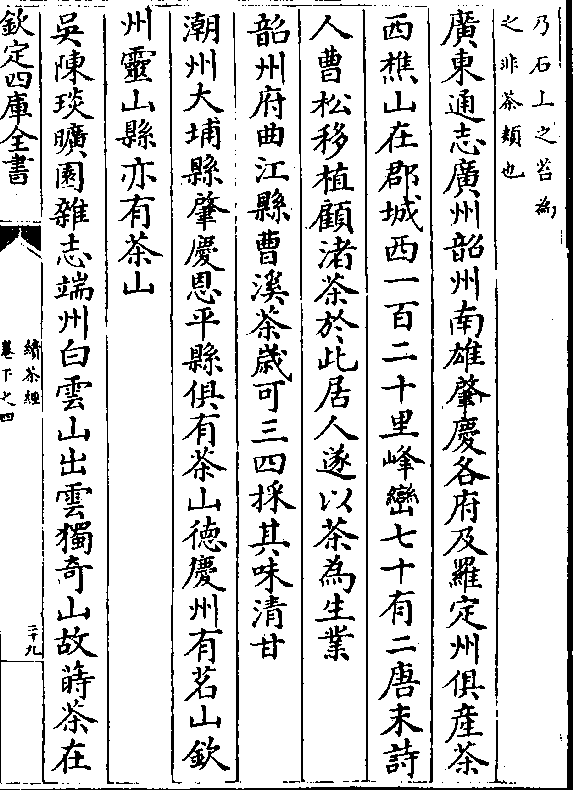 乃石上之苔為
之非茶類也
廣東通志廣州韶州南雄肇慶各府及羅定州俱産茶
西樵山在郡城西一百二十里峰巒七十有二唐末詩
人曹松移植顧渚茶於此居人遂以茶為生業
韶州府曲江縣曹溪茶歲可三四採其味清甘
潮州大埔縣肇慶恩平縣俱有茶山德慶州有茗山欽
州靈山縣亦有茶山
吳陳琰曠園雜志端州白雲山出雲獨奇山故蒔茶在
欽定四庫全書
續茶經
卷下之四
三十九